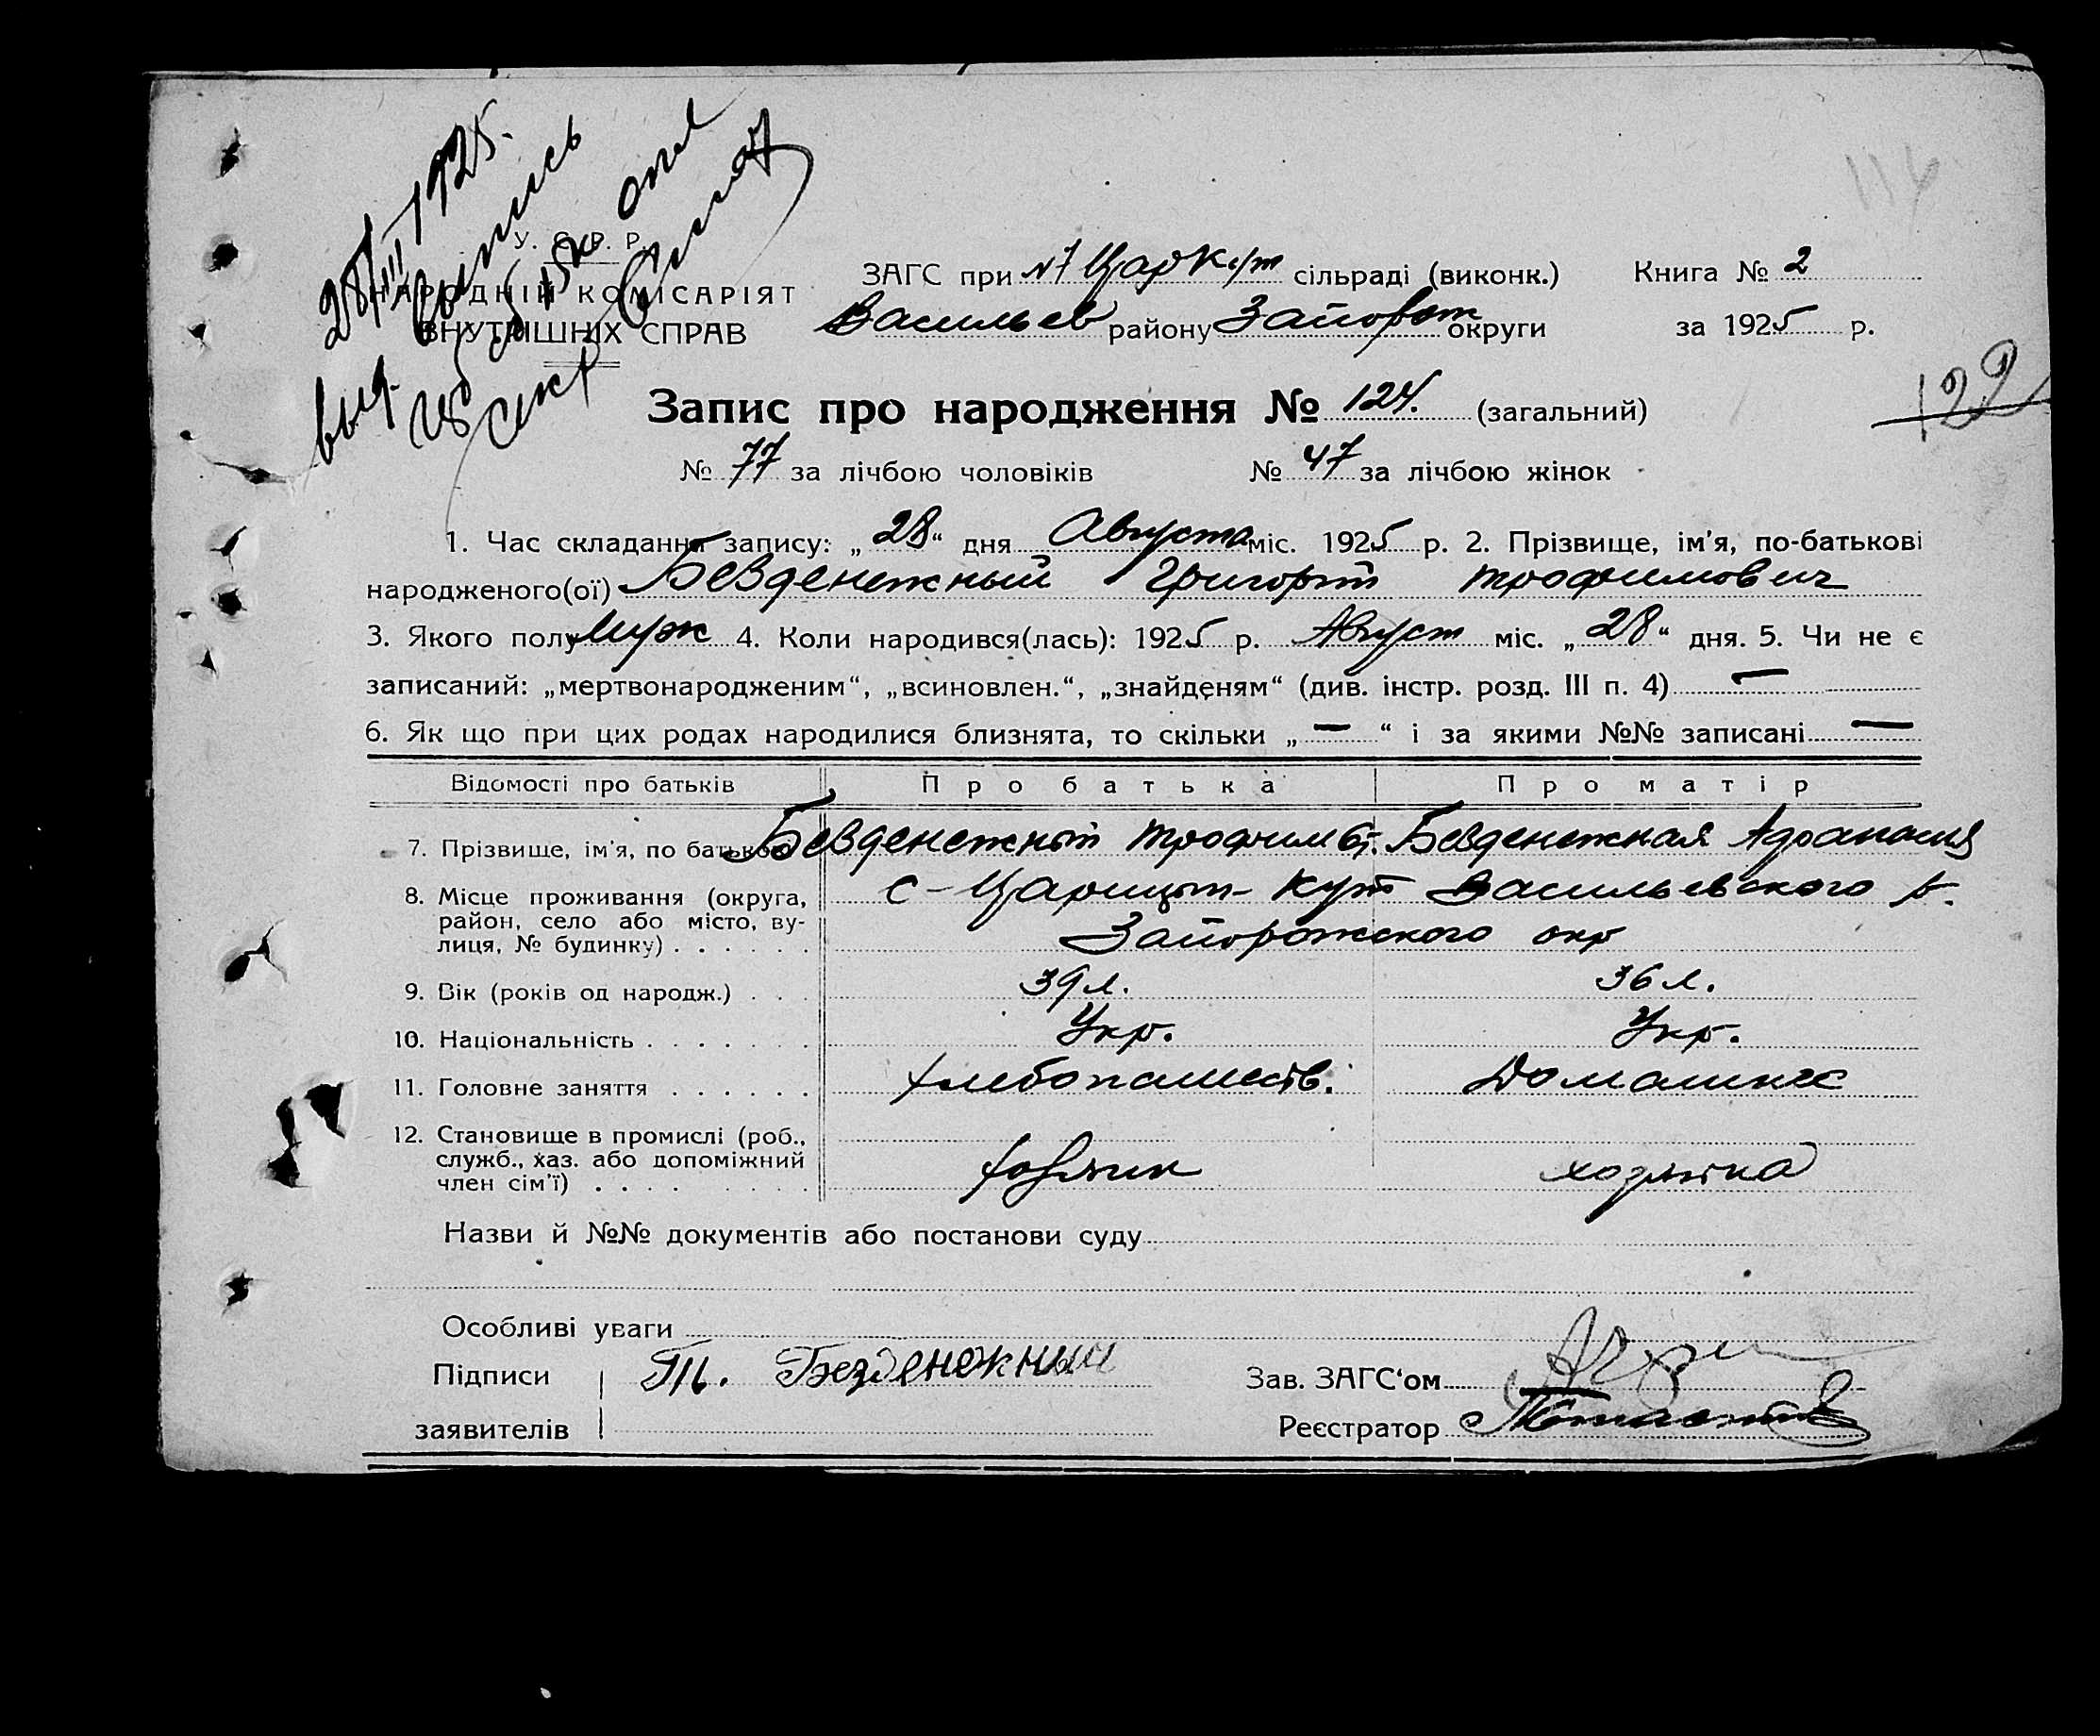 116
28/VIII 1925.
выд. выпись
У. С. Р. Р.
НАРОДНІЙ КОМІСАРІЯТ
ВНУТРІШНІХ СПРАВ
ЗАГС при №7 Цар Кут сільраді (виконк.) Книга № 2
Васильев району Запорож округи за 1925 р.
122
Запис про народження № 124. (загальний)
№ 77 за лічбою чоловіків № 47 за лічбою жінок
1. Час складання запису: „28“ дня Августа міс. 1925 р. 2. Прізвище, ім'я, по-батькові
народженого(ої) Безденежный Григорий Трофимович
3. Якого полу Муж 4. Коли народився(лась): 1925 р. Август міс. „28“ дня. 5. Чи не є
записаний: „мертвонародженим“, „всиновлен.“, „знайденям“ (див. інстр. розд. III п. 4) —
6. Як що при цих родах народилися близнята, то скільки „—“ і за якими №№ записані —
Відомості про батьків Про батька Про матір
7. Прізвище, ім'я, по батькові Безденежный Трофим Безденежная
8. Місце проживання (округа, с-Царицын-Кут Васильевского р.
район, село або місто, ву-
лиця, № будинку) . . . . . . Запорожского окр
9. Вік (років од народж.) . . . 39 л. 36 л.
10. Національність . . . . . . . Укр. Укр.
11. Головне заняття . . . . . . хлебопашеств. Домашнее
12. Становище в промислі (роб.,
служб., хаз. або допоміжний хозяин хозяйка
член сім'ї) . . . . . . . .
Назви й №№ документів або постанови суду
Особливі уваги
Підписи Т. Безденежный Зав. ЗАГС'ом
заявителів Реєстратор